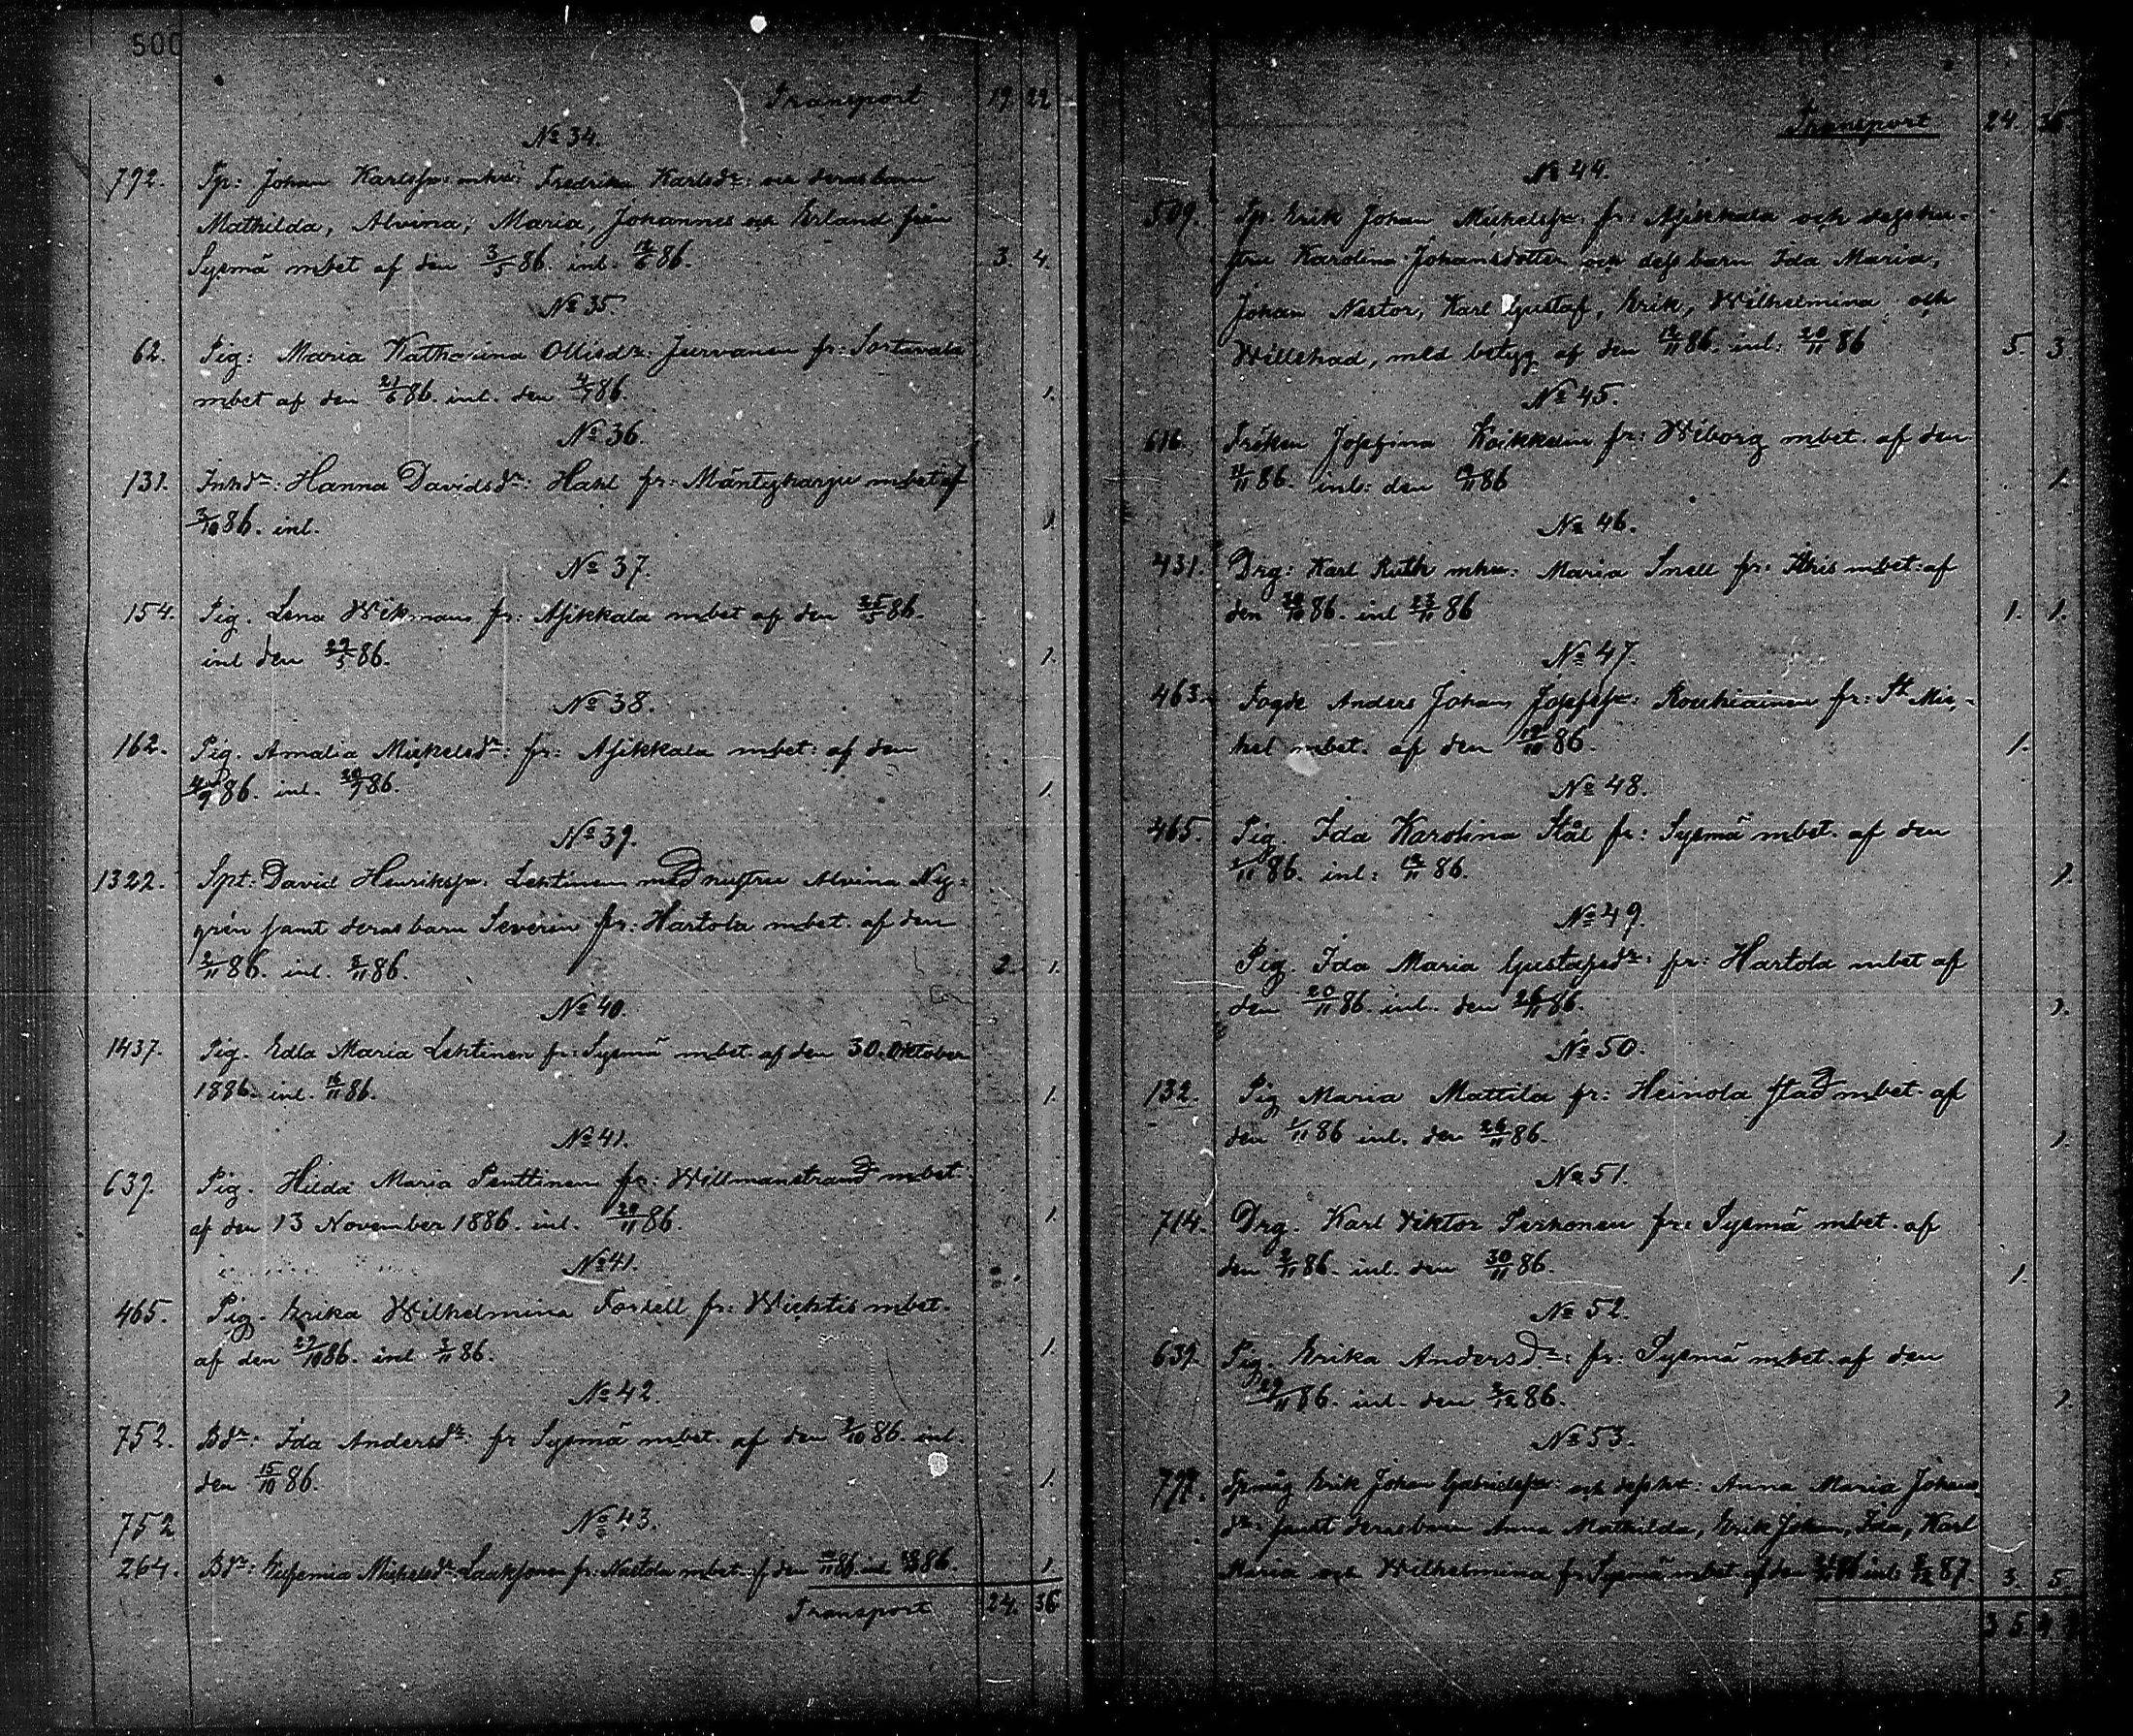 500
Transport 19 22
No 34.
792. Tp: Johan Karlsson mhu: Fredrika Karlsdr: och deras barn
Mathilda, Alvina, Maria, Johannes och Erland från
Sysmä mbet af den 3/5 86. inl. 12/6 86. 3. 4.
No 35.
62. Pig: Maria Katharina Ollisdr: Jurvanen fr: Sortavala
mbet af den 21/6 86. inl. den 4/7 86. 1.
No 36.
131. Inhdr: Hanna Davidsdr: Hahl fr: Mäntyharju mbet af
3/10 86. inl. 1.
No 37.
154. Pig. Lena Wikman fr: Asikkala mbet af den 25/5 86.
inl den 29/5 86. 1.
No 38.
162. Pig. Amalia Mickelsdr: fr: Asikkala mbet: af den
/9 86. inl. 20/9 86. 1.
No 39.
1322. Spt: David Henriksson: Lehtinen med hustru Alvina Ny=
grén samt deras barn Severin fr: Hartola mbet. af den
2/11 86. inl. 2/11 86. 2. 1.
No 40.
1437. Pig. Edla Maria Lehtinen fr: Sysmä mbet. af den 30. Oktober
1886. inl. 16/11 86. 1.
No 41.
639. Pig. Hilda Maria Penttinen fr: Willmanstrand mbet.
af den 13 November 1886. inl. 20/11 86. 1.
No 41.
465. Pig. Erika Wilhelmina Forsell fr: Wichtis mbet.
af den 29/10 86. inl 2/11 86. 1.
No 42.
752. Bdr: Ida Andersdr: fr Sysmä mbet. af den 2/10 86. inl.
den 15/10 86. 1.
752 No 43.
264. Bdr: Eufemia Mickelsdr Laaksonen fr: Nastola mbet. af den 86. inl. 86. 1.
Transport 24. 36
Transport 24. 36
No 44.
509. Tp. Erik Johan Mickelsson fr: Asikkala och dess hu-
stru Karolina Johansdotter och dess barn Ida Maria,
Johan Nestor, Karl Gustaf, Erik, Wilhelmina och
Willehad, med betyg af den 12/11 86. inl: 20/11 86 5. 3.
No 45.
616. Fröken Josefina Koikkalin fr: Wiborg mbet. af den
11/11 86. inl: den 19/11 86 1.
No 46.
431. Drg: Karl Ruth mhu: Maria Snell fr: Ithis mbet: af
den 86. inl 23/11 86 1. 1.
No 47.
463. Fogde Anders Johan Josefsson: Rouhiainen fr: St Mic-
kel mbet. af den 19/10 86. 1.
No 48.
465. Pig. Ida Karolina Stål fr: Sysmä mbet. af den
1/11 86. inl: 12/11 86. 1.
No 49.
Pig. Ida Maria Gustafsdr: fr: Hartola mbet af
den 20/11 86. inl. den 26/11 86. 1.
No 50.
132. Pig Maria Mattila fr: Heinola stad mbet. af
den 1/11 86 inl. den 26/11 86. 1.
No 51.
714. Drg. Karl Viktor Perhonen fr: Sysmä mbet. af
den 2/11 86. inl. den 30/11 86. 1.
No 52.
639. Pig. Erika Andersdr: fr: Sysmä mbet. af den
29/11 86. inl. den 3/12 86. 1.
No 53.
Erik Johan Gabrielsson och dess hu: Anna Maria Johans
dr: samt deras barn Anna Mathilda, Erik Johan, Ida, Karl
Maria och Wilhelmina fr: Sysmä mbet af den inl: 87. 3. 5.
35